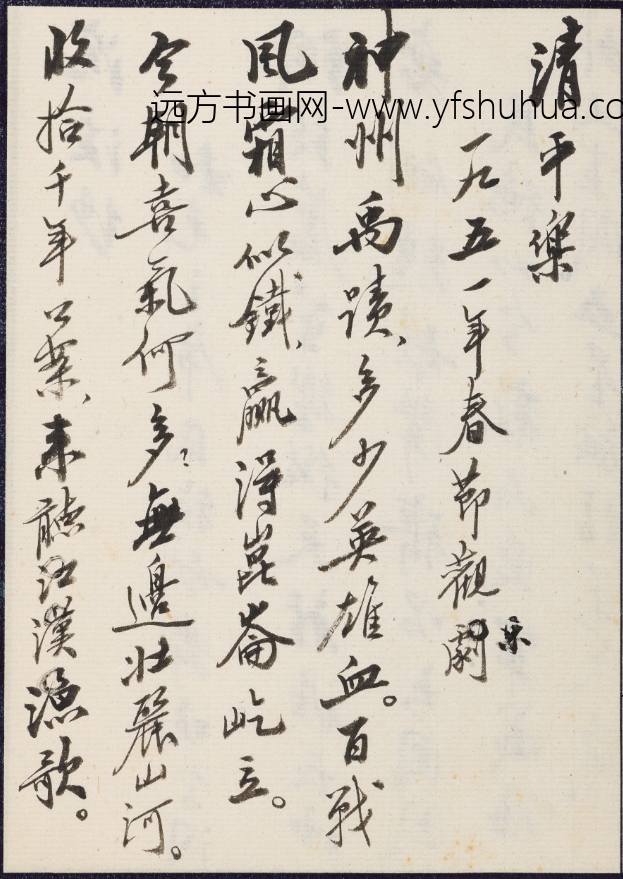 清平樂
一九五一年春節觀劇
神州禹蹟、多少英雄血。百戰
風霜心似鐵、贏得崑崙屹立。
今朝喜氣何多、無邊壯麗山河。
收拾千年公案、来聽江漢漁歌。
远方书画网-www.yfshuhua.co